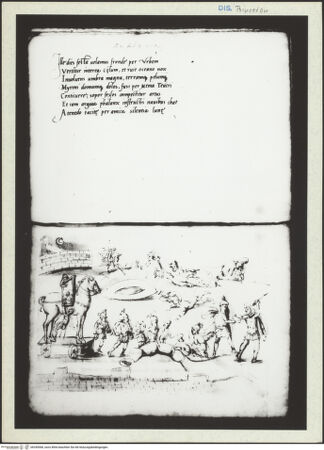 DIS. Princeton
Ille dies festa uelamus fronde per Vrbem
Vertitur interea cęlum, et ruit oceano nox
Inuoluens umbra magna, terramq; polumq;
Myrmidonumq; dolos, fusi per moenia Teucri
Conticuere; sopor fessos complectitur artus
Et iam argiua phalanx instructis nauibus ibat
A tenedo tacitę per amica silentia lunę